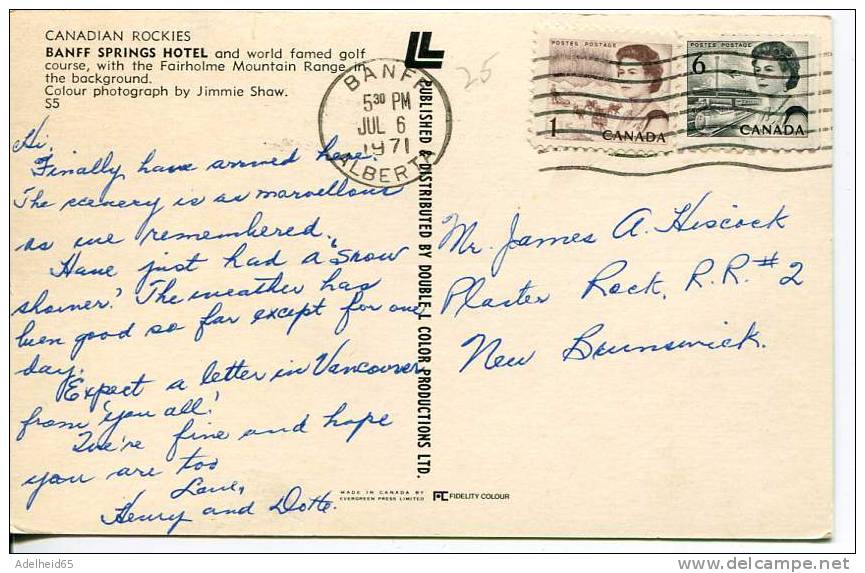 CANADIAN ROCKIES
BANFF SPRINGS HOTEL and world famed golf
course, with the Fairholme Mountain Range in
the background.
Colour photograph by Jimmie Shaw.
S5
Hi,
Finally have arrived here.
The scenery is as marvellous
as we remembered.
Have just had a "snow
shower". The weather has
been good so far except for one
day.
Expect a letter in Vancouver
from 'you all'.
We're fine and hope
you are too
Love,
Henry and Dotte.
LL
PUBLISHED & DISTRIBUTED BY DOUBLE L COLOR PRODUCTIONS LTD.
MADE IN CANADA BY
EVERGREEN PRESS LIMITED
FC FIDELITY COLOUR
BANFF
5 30 PM
JUL 6
1971
ALBERTA
25
POSTES POSTAGE
1 CANADA
POSTES POSTAGE
6
CANADA
Mr. James A. Hiscock
Plaster Rock, R.R. #2
New Brunswick.
Adelheid65
delcampe.net